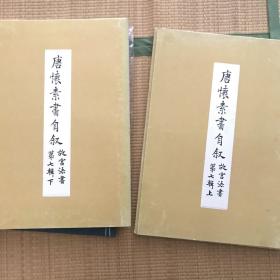 唐懷素書自叙
故宮法書
第七輯下
唐懷素書自叙
故宮法書
第七輯上